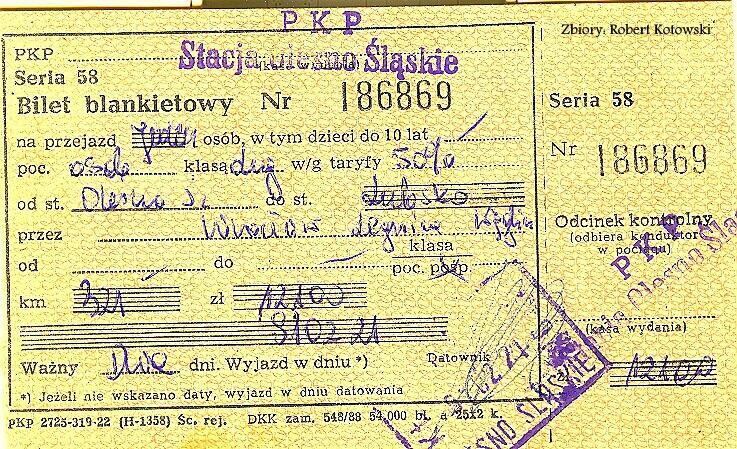 Zbiory: Robert Kotowski
P K P
Stacja Olesno Śląskie
PKP
Seria 58
Bilet blankietowy Nr 186869
na przejazd jeden osób, w tym dzieci do 10 lat
poc. osob klasą drug w/g taryfy 50%
od st. Olesno Śl. do st. Lubsko
przez Wrocław Legnica
klasa
od do
poc. posp.
km 321 zł 12100
810221
Ważny Dwa dni. Wyjazd w dniu *) Datownik
*) Jeżeli nie wskazano daty, wyjazd w dniu datowania
PKP 2725-319-22 (H-1358) Sc. rej. DKK zam. 548/88 54,000 bl. a 25t2 k.
Seria 58
Nr 186869
Odcinek kontrolny
(odbiera konduktor
w pociągu)
P K P
Olesno Śla
(kasa wydania)
12100
OLESNO ŚLĄSKIE